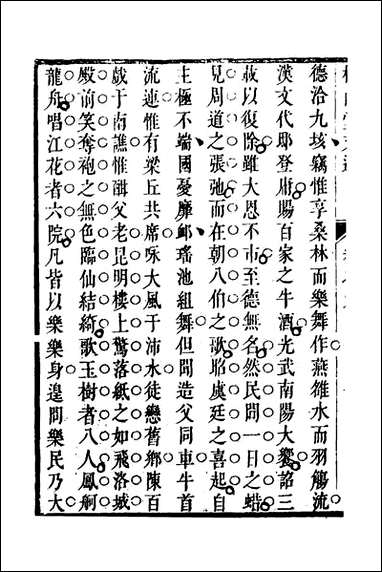 德洽九垓竊惟享桑林而樂舞作燕雒水而羽觴流
漢文代邸登庸賜百家之牛酒光武南陽大饗詔三
菽以復除雖大恩不市至德無名然民間一日之蜡
見周道之張弛而在朝八伯之歌昭虞廷之喜起自
主極不端國憂靡卹瑤池組舞但聞造父同車牛首
流連惟有梁丘共席咏大風于沛水徒戀舊鄉陳百
戲于南譙惟酬父老昆明樓上驚落紙之如飛洛城
殿前笑奪袍之無色臨仙結綺歌玉樹者八人鳳舸
龍舟唱江花者六院凡皆以樂樂身遑問樂民乃大